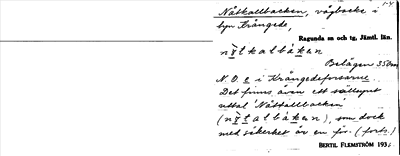 1-4
Nåtkallbacken, vägbacke i
byn Krångede,
Ragunda sn och tg, Jämtl. län.
Belägen 350 m
N.O. e i Krångedeforsarna.
Det finns även ett sällsynt
uttal 'Nåtfallbacken'
som dock
med säkerhet är en för. (forts.)
BERTIL FLEMSTRÖM 193